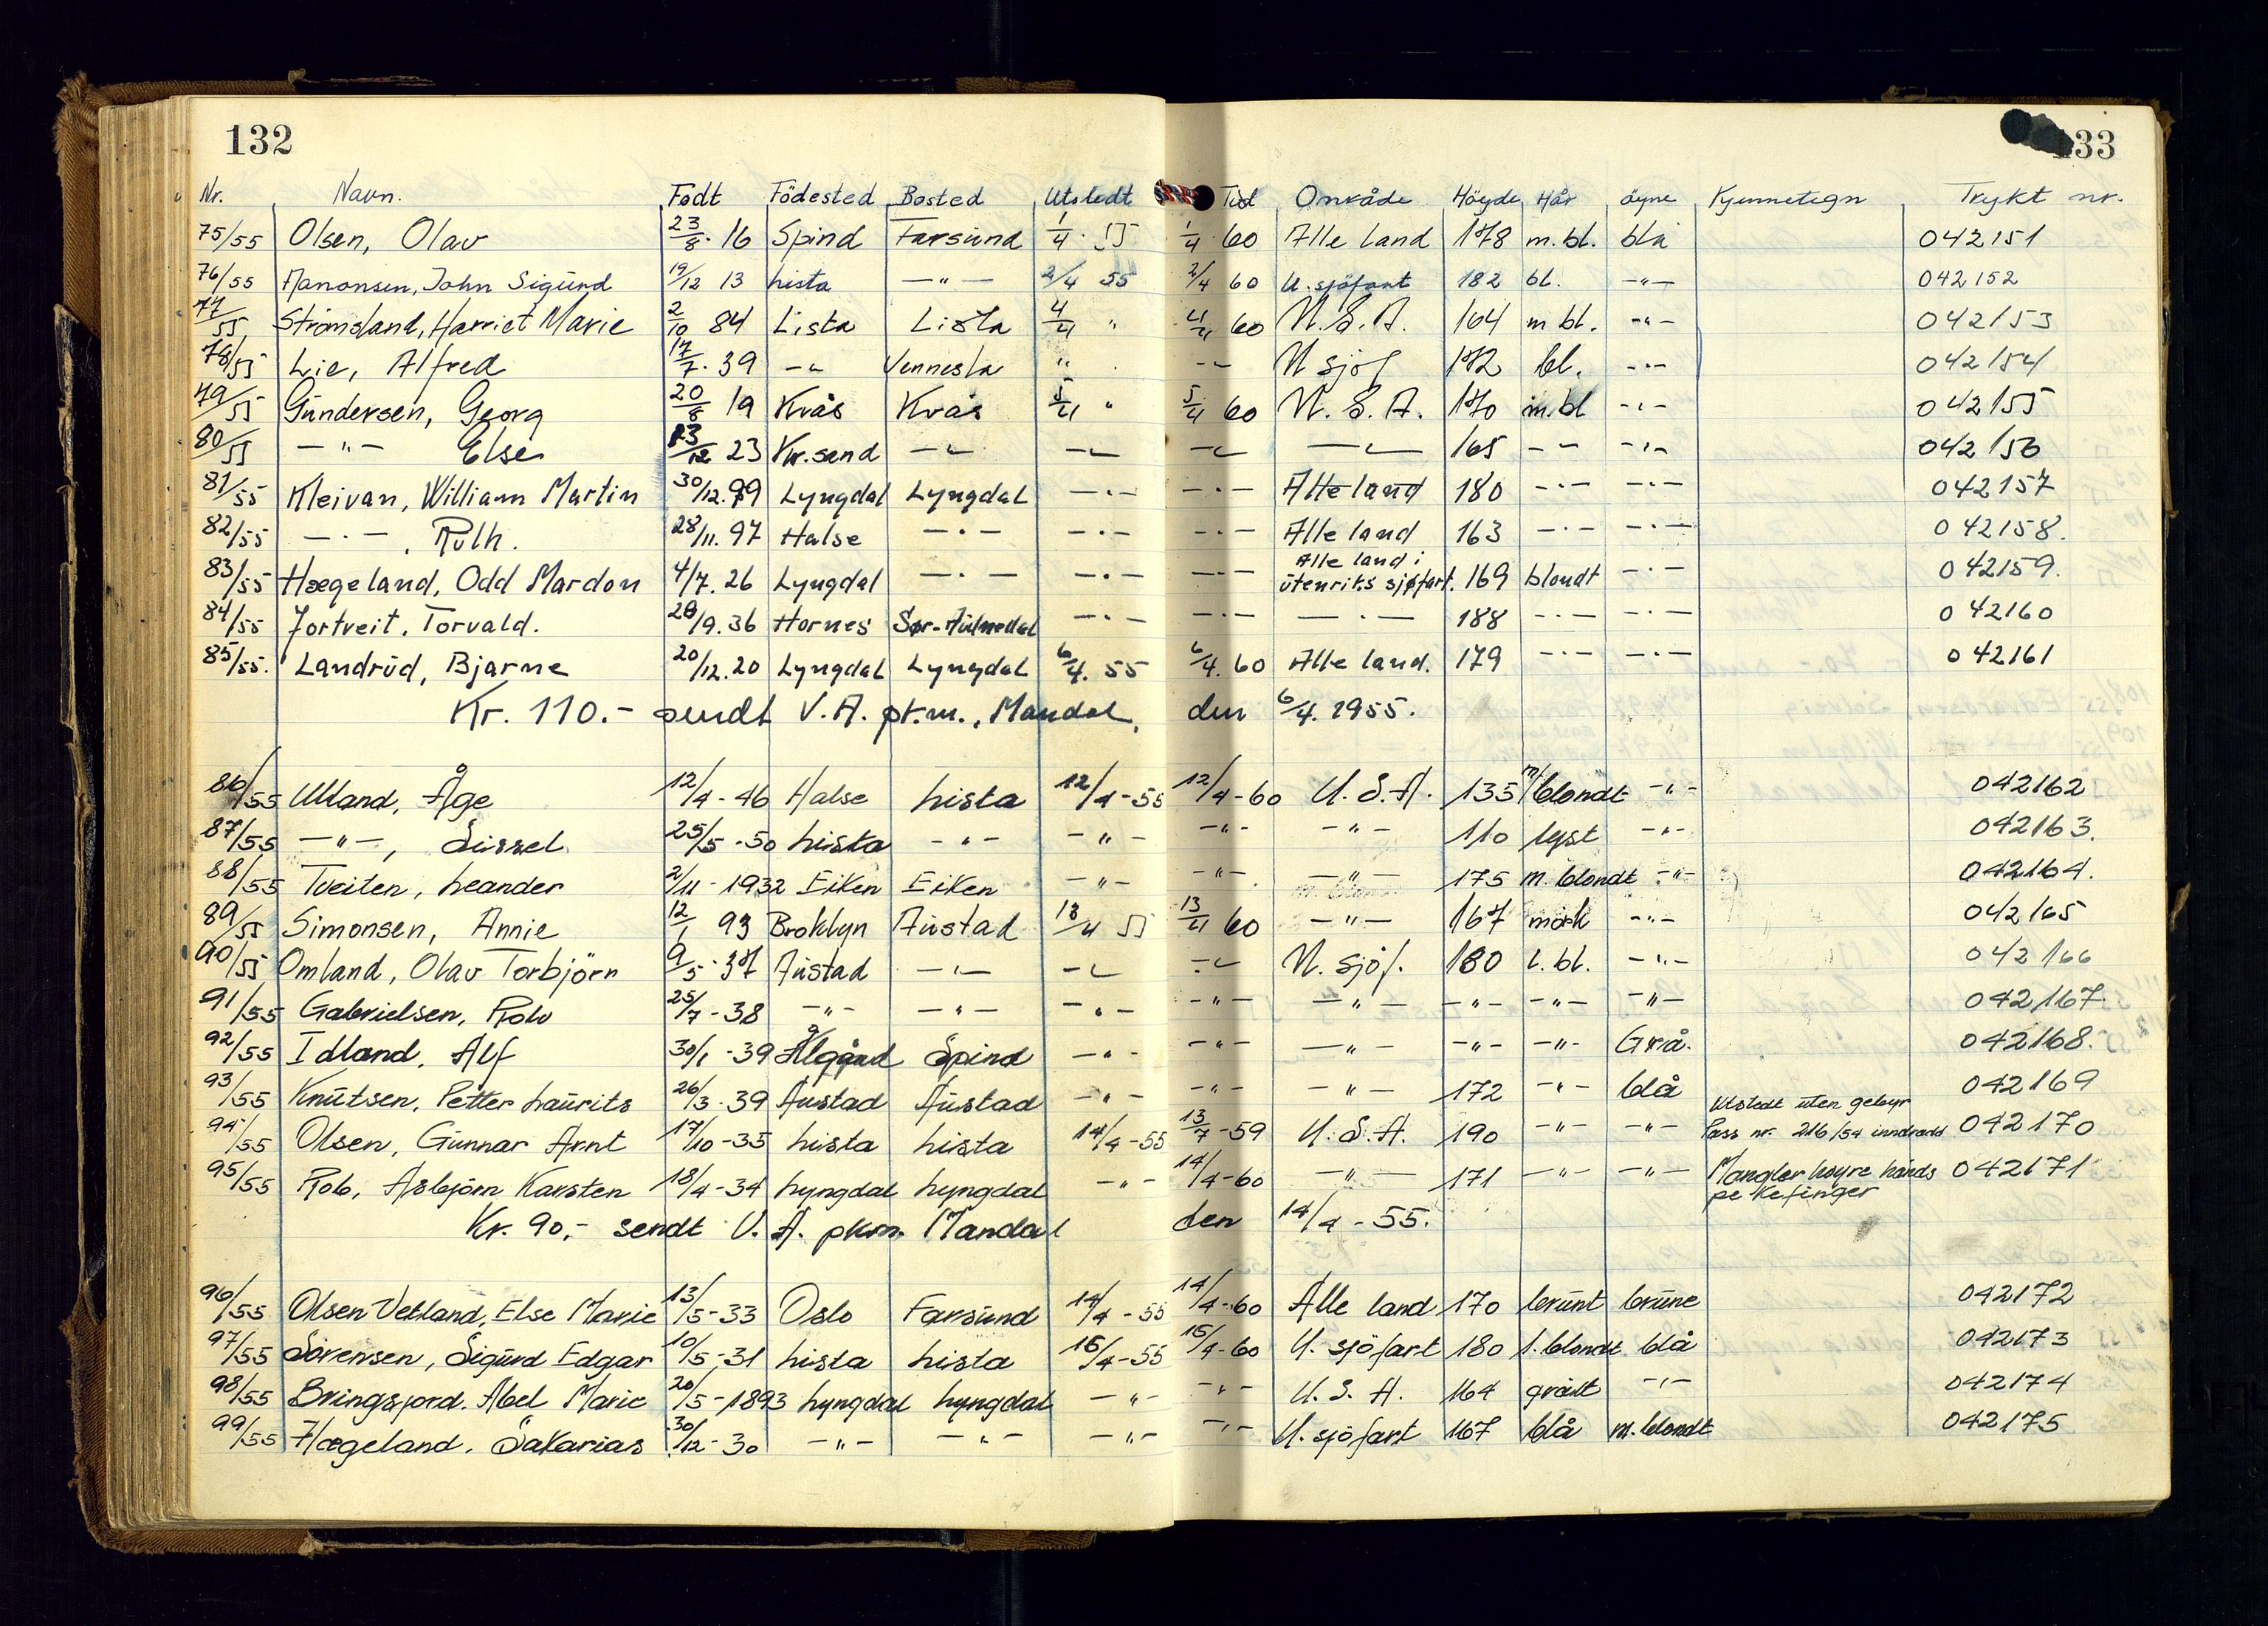 132
133
Nr. Navn. Født Födested Bosted Utstedt Tid Område Höyde Hår öyne Kjennetegn Trykt nr.
75/55 Olsen, Olav 23/8. 16 Spind Farsund 1/4. 55 1/4 60 Alle land 178 m. bl. blå 042151
76/55 John Sigurd 19/12 13 Lista —"— 2/4 55 2/4 60 U. sjöfart 182 bl. —"— 042152
77/55 Strömsland, Harriet Marie 2/10 84 Lista Lista 4/4 " 4/4 60 U. S. A. 164 m bl. —"— 042153
78/55 Lie, Alfred 17/7. 39 —"— Vennesla " —"— U sjöf 172 bl. —"— 042154
79/55 Gundersen, Georg 20/8 19 Kvås Kvås 5/4 " 5/4 60 U. S. A. 170 m. bl —"— 042155
80/55 —"— Else 13/12 23 Kr.sand —"— —"— —"— —"— 165 —"— —"— 042156
81/55 Kleivan, William Martin 30/12.99 Lyngdal Lyngdal —"— —"— Alle land 180 —"— —"— 042157
82/55 —"—, Ruth. 28/11. 97 Halse —"— —"— —"— Alle land 163 —"— —"— 042158.
83/55 Hægeland, Odd Mardon 4/7. 26 Lyngdal —"— —"— —"— Alle land i utenriks sjøfart. 169 blondt —"— 042159.
84/55 Fortveit, Torvald. 28/9. 36 Hornes Sør-Audnedal —"— —"— —"— 188 —"— —"— 042160
85/55. Landrud, Bjarne 20/12.20 Lyngdal Lyngdal 6/4. 55 6/4. 60 Alle land. 179 —"— —"— 042161
Kr. 110.- sendt V. A. pk.m., Mandal, den 6/4. 1955.
86/55 Ulland, Åge 12/4 - 46 Halse Lista 12/4 - 55 12/4 - 60 U. S. A. 135 m/blondt —"— 042162
87/55 —"—, Sissel 25/5 - 50 Lista —"— —"— —"— —"— 110 lyst —"— 042163.
88/55 Tveiten, Leander 2/11 - 1932 Eiken Eiken —"— —"— —"— 175 m. blondt —"— 042164.
89/55 Simonsen, Annie 12/1 93 Broklyn Austad 13/4 55 13/4 60 —"— 167 mörk —"— 042165
90/55 Omland, Olav Torbjörn 9/5. 37 Austad —"— —"— —"— U. sjöf. 180 l. bl. —"— 042166
91/55 Gabrielsen, Rolv 25/7 - 38 —"— —"— —"— —"— —"— —"— —"— —"— 042167.
92/55 Idland, Alf 30/1 - 39 Ålgård Spind —"— —"— —"— —"— —"— Grå. 042168.
93/55 Knutsen, Petter Laurits 26/3 - 39 Austad Austad —"— —"— —"— 172 —"— blå 042169
94/55 Olsen, Gunnar Arnt 17/10 - 35 Lista Lista 14/4 - 55 13/7 - 59 U. S. A. 190 —"— —"— Utstedt uten gebyr Pass nr. 216/54 inndradd 042170
95/55 Rob, Asbjörn Karsten 18/4 - 34 Lyngdal Lyngdal —"— 14/4 - 60 —"— 171 —"— —"— Mangler høyre hånds pekefinger 042171
Kr. 90,- sendt V. A. pkm. Mandal den 14/4 - 55.
96/55 Olsen Vetland, Else Marie 13/5 - 33 Oslo Farsund 14/4 - 55 14/4 - 60 Alle land 170 brunt brune 042172
97/55 Sörensen, Sigurd Edgar 10/5 - 31 Lista Lista 15/4 - 55 15/4 - 60 U. sjöfart 180 l. blondt blå 042173
98/55 Bringsjord. Abel Marie 20/5 - 1893 Lyngdal Lyngdal —"— —"— U. S. A. 164 grått —"— 042174
99/55 Hægeland, Sakarias 30/12 - 30 —"— —"— —"— —"— U. sjöfart 167 blå m. blondt 042175